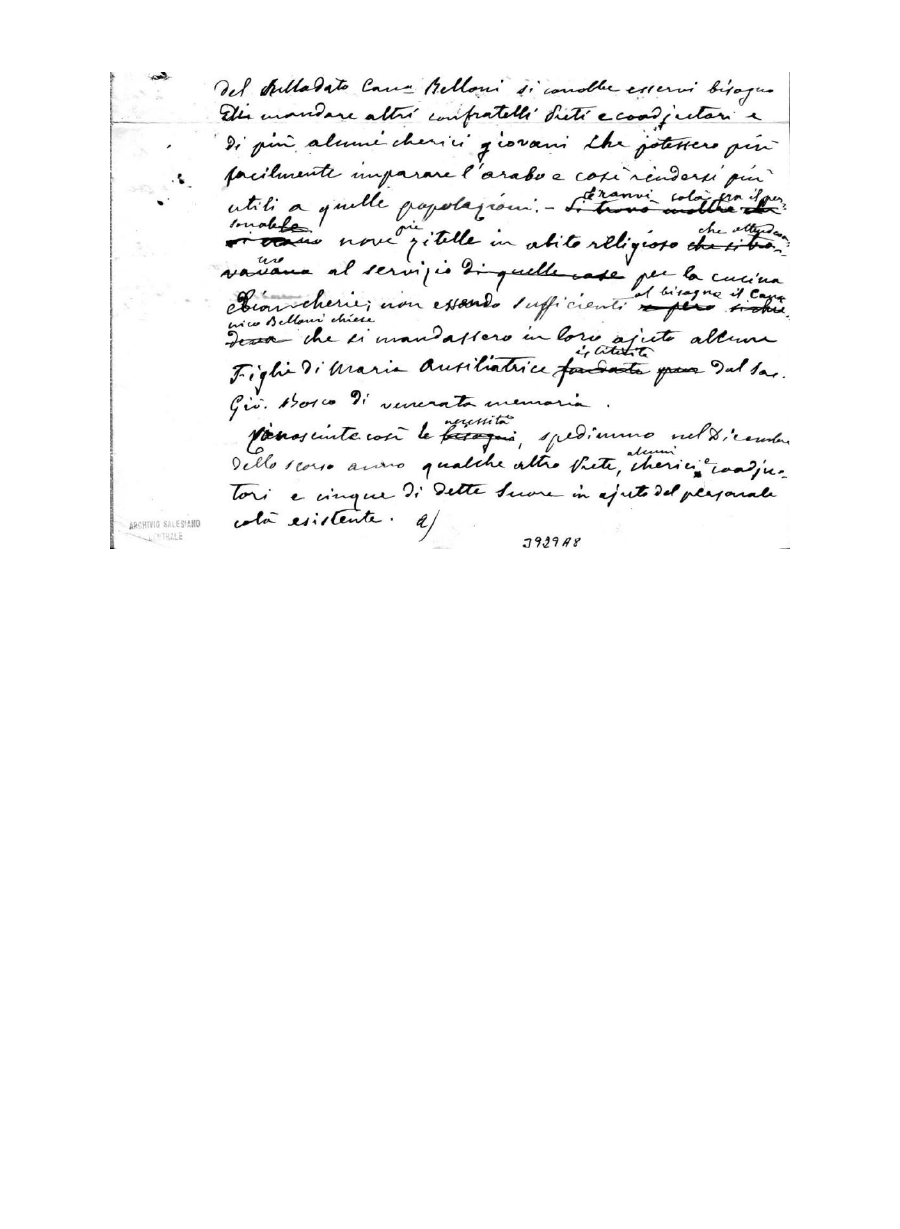 del sullodato Can.º Belloni si conobbe esservi bisogno
di mandare altri confratelli Preti e coadjutori e
di più alcuni cherici giovani che potessero più
facilmente imparare l'arabo e così rendersi più
utili a quelle popolazioni. – Si trovò inoltre che
Eranvi colà fra il per-
sonale
vi erano nove pie zitelle in abito religioso che si tro-
che attendeva-
vavano al servizio di quelle case per la cucina
no
e biancherie; non essendo sufficienti e però si chie-
al bisogno il Cano
nico Belloni chiese
deva che si mandassero in loro ajuto alcune
Figlie di Maria Ausiliatrice fondate pure dal Sac.
istituite
Gio. Bosco di venerata memoria.
Conosciute così le bisogni, spedimmo nel Dicembre
necessità
dello scorso anno qualche altro Prete, alcuni cherici e coadju-
tori e cinque di dette Suore in ajuto del personale
colà esistente. a)
ARCHIVIO SALESIANO
CENTRALE
J929A8